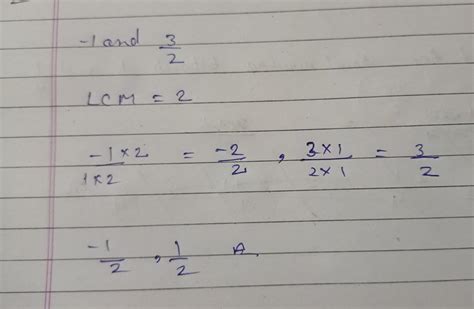 -1 and 3/2
LCM = 2
-1×2/1×2 = -2/2 , 3×1/2×1 = 3/2
-1/2 , 1/2 A.